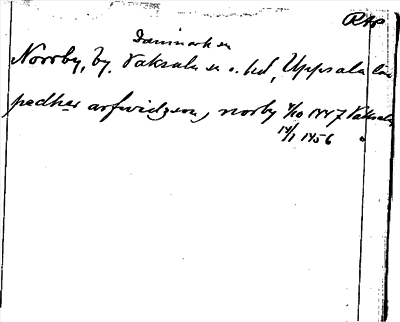 RAP
Danmarks sn
Norrby, by. Vaksala sn o. hd, Uppsala län
pedher arfwidzson, norby 4/10 1447 Vaksala
14/1 1456